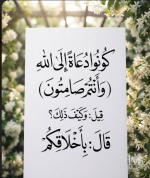 كُونُوا دُعَاةً إِلَى اللهِ
(وَأَنْتُمْ صَامِتُونَ)
قِيلَ: وَكَيْفَ ذَلِكَ؟
قَالَ: بِأَخْلَاقِكُمْ